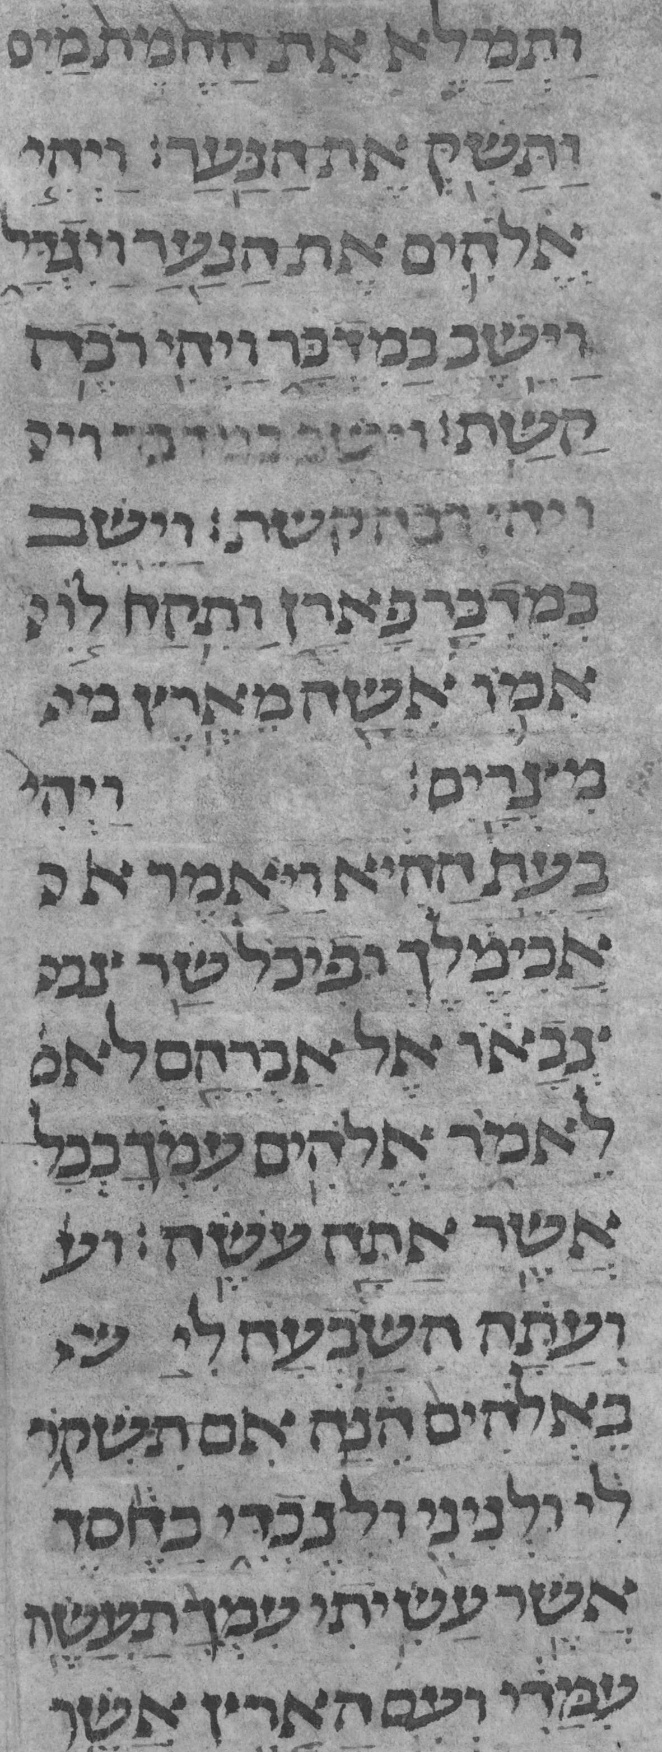 ותמלא את החמת מים
ותשק את הנער׃ ויהי
אלהים את הנער ויגדל
וישב במדבר ויהי רבה
קשת׃ וישב במדבר ויק
ויהי רבה קשת׃ וישב
במדבר פארן ותקח לו
אמו אשה מארץ מי
מצרים׃ ויהי
בעת ההיא ויאמר א
אבימלך ופיכל שר צב
צבאו אל אברהם לאמ
לאמר אלהים עמך בכל
אשר אתה עשה׃ וע
ועתה השבעה לי
באלהים הנה אם תשקר
לי ולניני ולנכדי כחסד
אשר עשיתי עמך תעשה
עמדי ועם הארץ אשר